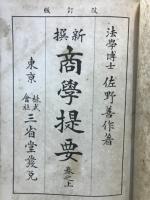 版訂改
法學博士 佐野善作著
新撰 商學提要 卷之上
東京 株式會社 三省堂發兌